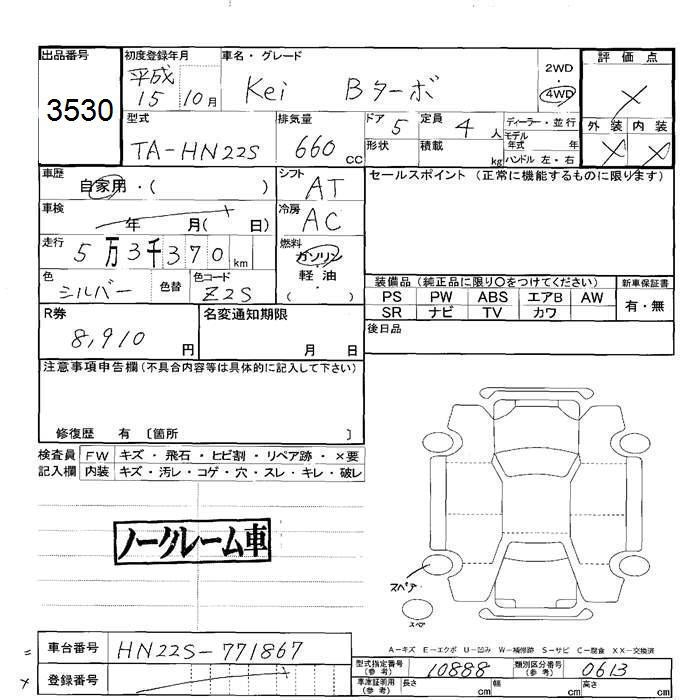 出品番号
3530
初度登録年月
平成
15 10月
車名・グレード
Kei Bターボ
2WD
・
4WD
評価点
×
外装 内装
× ×
型式
TA-HN22S
排気量
660 cc
ドア 5
形状
定員 4 人
積載 kg
ディーラー・並行
モデル
年式 年
ハンドル 左・右
車歴
自家用・( )
シフト
AT
車検
年 月( 日)
冷房
AC
走行
5万3千370km
燃料
ガソリン
軽油
( )
色
シルバー
色替
色コード
Z2S
R券
8,910 円
名変通知期限
月 日
セールスポイント (正常に機能するものに限ります)
装備品 (純正品に限り〇をつけてください)
新車保証書
PS PW ABS エアB AW
SR ナビ TV カワ
有・無
後日品
注意事項申告欄(不具合内容等は具体的に記入して下さい)
修復歴 有 〔箇所 〕
検査員
記入欄
FW キズ・飛石・ヒビ割・リペア跡・×要
内装 キズ・汚レ・コゲ・穴・スレ・キレ・破レ
ノークレーム車
スペア
スペア
A-キズ E-エクボ U-凹み W-補修跡 S-サビ C-腐食 XX-交換済
= 車台番号 HN22S-771867
× 登録番号
型式指定番号
(参考)
10888
類別区分番号
(参考)
0613
車庫証明用
(参考)
長さ cm 幅 cm 高さ cm